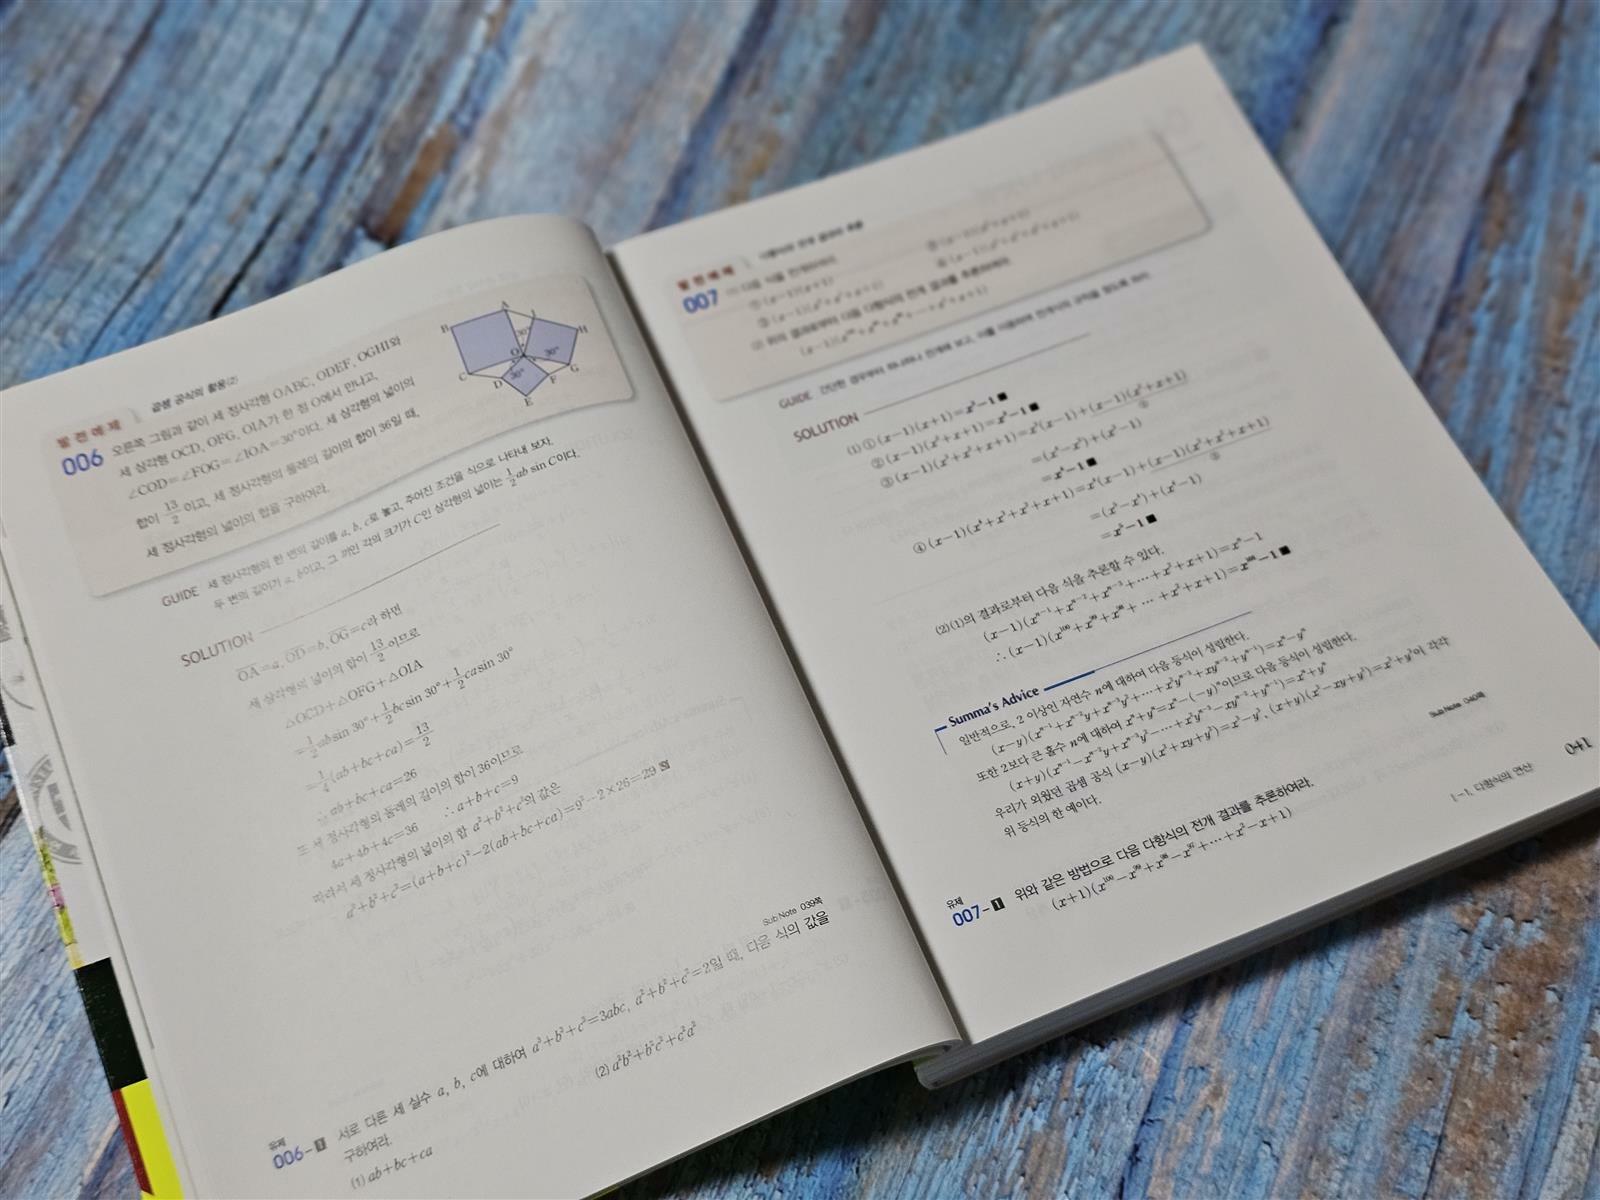 곱셈 공식의 활용(2)
발전예제
006 오른쪽 그림과 같이 세 정사각형 OABC, ODEF, OGHI와
세 삼각형 OCD, OFG, OIA가 한 점 O에서 만나고,
∠COD=∠FOG=∠IOA=30°이다. 세 삼각형의 넓이의
합이 13/2이고, 세 정사각형의 둘레의 길이의 합이 36일 때,
세 정사각형의 넓이의 합을 구하여라.
A
B
I
H
30°
O
30°
C
30°
G
D
F
E
GUIDE 세 정사각형의 한 변의 길이를 a, b, c로 놓고, 주어진 조건을 식으로 나타내 보자.
두 변의 길이가 a, b이고, 그 끼인 각의 크기가 C인 삼각형의 넓이는 1/2 ab sin C이다.
SOLUTION
OA=a, OD=b, OG=c라 하면
세 삼각형의 넓이의 합이 13/2이므로
△OCD+△OFG+△OIA
=1/2 ab sin 30°+1/2 bc sin 30°+1/2 ca sin 30°
=1/4(ab+bc+ca)=13/2
∴ ab+bc+ca=26
또 세 정사각형의 둘레의 길이의 합이 36이므로
4a+4b+4c=36 ∴ a+b+c=9
따라서 세 정사각형의 넓이의 합 a²+b²+c²의 값은
a²+b²+c²=(a+b+c)²−2(ab+bc+ca)=9²−2×26=29
Sub Note 039쪽
유제
006-1 서로 다른 세 실수 a, b, c에 대하여 a³+b³+c³=3abc, a²+b²+c²=2일 때, 다음 식의 값을
구하여라.
(1) ab+bc+ca
(2) a²b²+b²c²+c²a²
발전예제
007 (1) 다음 식을 전개하여라.
① (x−1)(x+1)
② (x−1)(x²+x+1)
③ (x−1)(x³+x²+x+1)
④ (x−1)(x⁴+x³+x²+x+1)
(2) 위의 결과로부터 다음 다항식의 전개 결과를 추론하여라.
(x−1)(x¹⁰⁰+x⁹⁹+x⁹⁸+⋯+x²+x+1)
GUIDE 간단한 경우부터 하나하나 전개해 보고, 이를 이용하여 전개식의 규칙을 찾도록 하자.
SOLUTION
(1) ① (x−1)(x+1)=x²−1 ■
② (x−1)(x²+x+1)=x³−1 ■
③ (x−1)(x³+x²+x+1)=x³(x−1)+(x−1)(x²+x+1)
②
=(x⁴−x³)+(x³−1)
=x⁴−1 ■
④ (x−1)(x⁴+x³+x²+x+1)=x⁴(x−1)+(x−1)(x³+x²+x+1)
③
=(x⁵−x⁴)+(x⁴−1)
=x⁵−1 ■
(2) (1)의 결과로부터 다음 식을 추론할 수 있다.
(x−1)(xⁿ⁻¹+xⁿ⁻²+xⁿ⁻³+⋯+x²+x+1)=xⁿ−1
∴ (x−1)(x¹⁰⁰+x⁹⁹+x⁹⁸+⋯+x²+x+1)=x¹⁰¹−1 ■
Summa's Advice
일반적으로, 2 이상인 자연수 n에 대하여 다음 등식이 성립한다.
(x−y)(xⁿ⁻¹+xⁿ⁻²y+xⁿ⁻³y²+⋯+x²yⁿ⁻³+xyⁿ⁻²+yⁿ⁻¹)=xⁿ−yⁿ
또한 2보다 큰 홀수 n에 대하여 xⁿ+yⁿ=xⁿ−(−y)ⁿ이므로 다음 등식이 성립한다.
(x+y)(xⁿ⁻¹−xⁿ⁻²y+xⁿ⁻³y²−⋯+x²yⁿ⁻³−xyⁿ⁻²+yⁿ⁻¹)=xⁿ+yⁿ
우리가 외웠던 곱셈 공식 (x−y)(x²+xy+y²)=x³−y³, (x+y)(x²−xy+y²)=x³+y³이 각각
위 등식의 한 예이다.
Sub Note 040쪽
유제
007-1 위와 같은 방법으로 다음 다항식의 전개 결과를 추론하여라.
(x+1)(x¹⁰⁰−x⁹⁹+x⁹⁸−x⁹⁷+⋯+x²−x+1)
I-1. 다항식의 연산
041